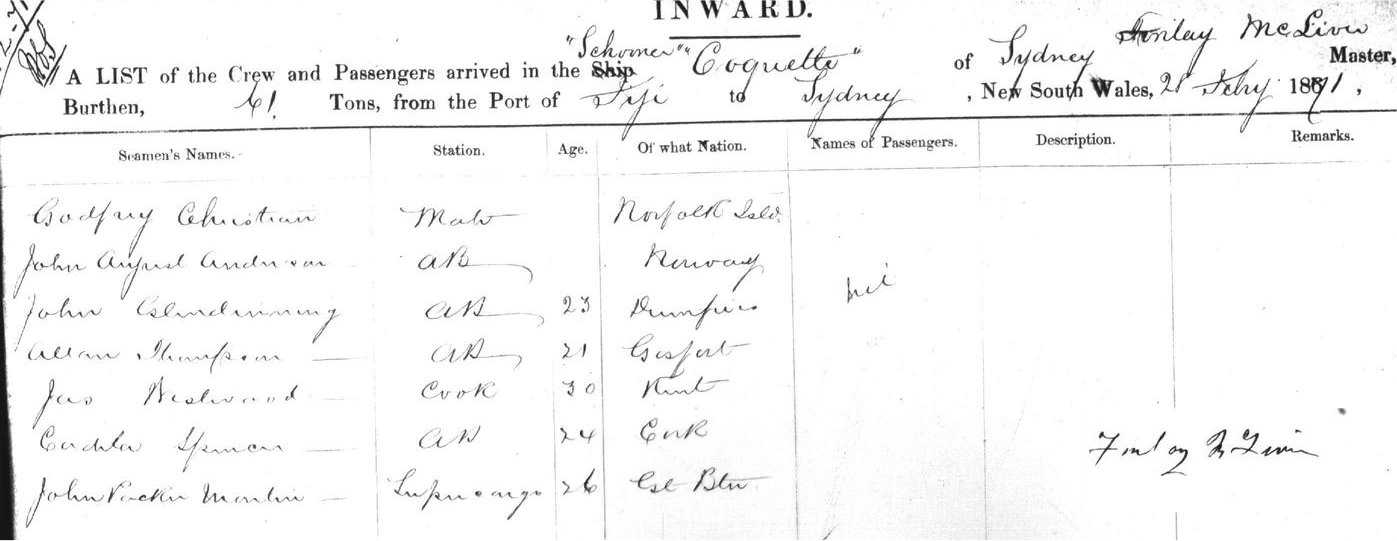 INWARD.
"Schooner" "Coquette" Finlay McLiver
A LIST of the Crew and Passengers arrived in the Ship of Sydney Master,
Burthen, 61 Tons, from the Port of Fiji to Sydney, New South Wales, 28 Febry 1871,
Seamen's Names. Station. Age. Of what Nation. Names of Passengers. Description. Remarks.
Godfrey Christian Mate Norfolk Isld.
John August Anderson AB Norway
nil
John Glendinning AB 23 Dumfries
Allan Thompson AB 21 Gosport
Jas Westwood Cook 30 Kent
Spencer AB 24 Cork
John Packer Martin Supercargo 26 Gt Btn
Finlay